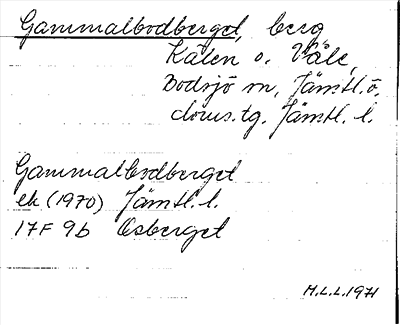 Gammalbodberget, berg
Kälen o. Våle,
Bodsjö sn, Jämtl.ö.
doms.tg. Jämtl. l.
Gammalbodberget
ek (1970) Jämtl. l.
17F 9b Osberget
M.L.L. 1971